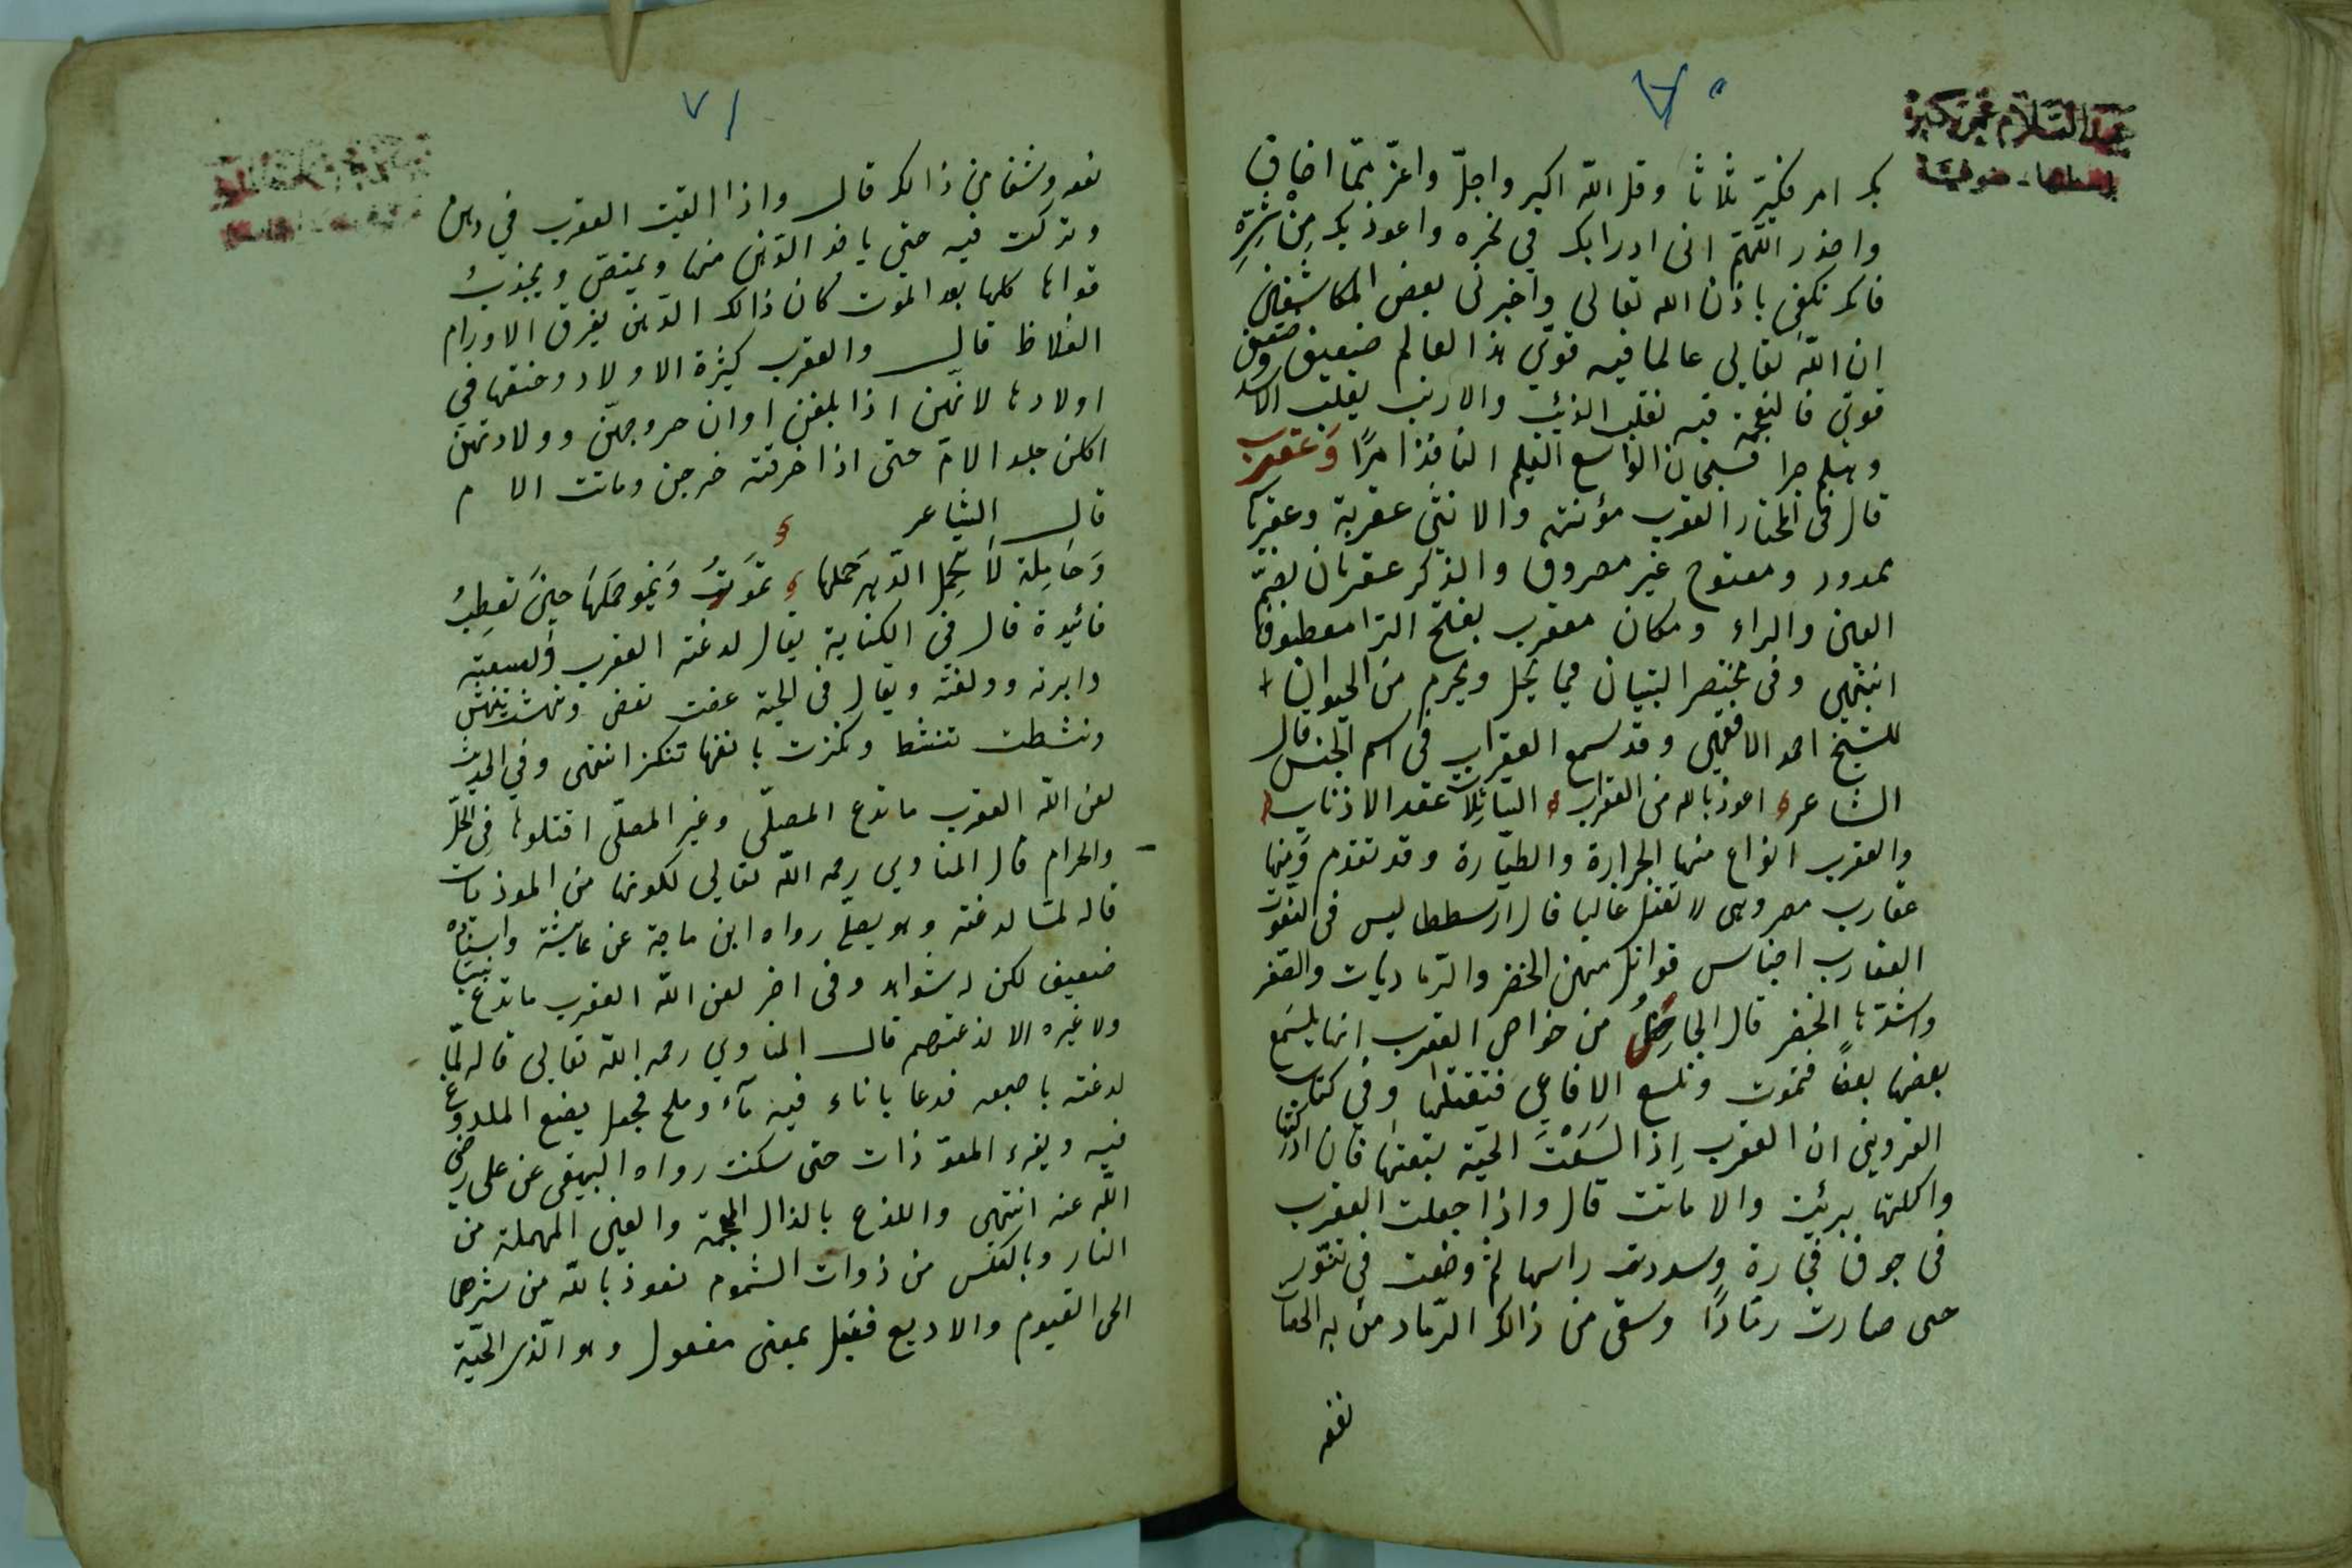 ٧٠
بك امر فكبّر ثلاثا وقل الله اكبر واجلّ واعزّ ممّا اخاف
واحذر اللّهمّ انى ادرا بك في نحره واعوذ بك مِنْ شَرِّهِ
فانك تكفى باذن الله تعالى واخبرنى بعض المكاشفين
ان اللّه تعالى عالما فيه قوىّ هذا العالم ضعيف وضعيف
قوىّ فالنعجة فيه تغلب الذئب والارنب يغلب الاسد
وهلم جرا فسبحان الواسع العليم النافذ امرًا وَعقرب
قال فى المختار العقرب مؤنثة والانثى عقربة وعقرباء
ممدود ومفتوح غير مصروف والذكر عقربان بضمّ
العين والراء ومكان معقرب بفتح الرّا معطوفا
انتهى وفى مختصر التبيان فيما يحل ويحرم من الحيوان
للشيخ احمد الاقفهسى وقد سمع العقراب فى اسم الجنس قال
الشاعر اعوذ بالله من العقراب الشائلات عقد الاذناب
والعقرب انواع منها الجرارة والطيّارة وقد تقدم ومنها
عقارب مصر وهى لا تقتل غالبا قال ارسططاليس فى النعوت
العقارب اجناس قواتل منهن الخضر والرّماديات والصفر
واشدّها الخضر قال الجاحظ من خواص العقرب انها يلسع
بعضها بعضًا فتموت وتلسع الافاعي فتقتلها وفي كتاب
القزوينى ان العقرب اِذا لَسَعَتْ الحيّة تبعتها فان ادركتها
واكلتها برئت والا ماتت قال واذا جعلت العقرب
فى جوف فخارة وسددت راسها ثم وضعت في تنّور
حتى صارت رمَادًا وسقى من ذالك الرّماد من به الحصاة
نفعه
٧١
نفعه وشفا من ذالك قال واذا القيت العقرب في دهن
وتركت فيه حتى ياخذ الدّهن منها ويمتصّ ويجذبُ
قواها كلها بعد الموت كان ذالك الدّهن يفرق الاورام
الغلاظ قال والعقرب كثيرة الاولاد وحتفها في
اولادها لانّهن اذا بلغن اوان خروجهنّ وولادتهن
اكلن جلد الامّ حتى اذا خرقته خرجن وماتت الام
قال الشاعر
وَحَامِلة لَا تحْمِل الدّهر حَملها تموتُ وَينمو حملهَا حِينَ تَعطِبُ
فائدة قال فى الكناية يقال لدغته العقرب ولسعته
وابرته وولغته ويقال فى الحية عضت تعض ونهشت تنهش
ونشطت تنشط ونكزت بانفها تنكز انتهى وفي الحديث
لعن اللّه العقرب ما تدع المصلّى وغير المصلّى اقتلوها فِى الحلّ
والحرام قال المناوي رحمه اللّه تعالى لكونها من الموذيات
قاله لمّا لدغته وهو يصلّى رواه ابن ماجة عن عايشة واسناده
ضعيف لكن له شواهد وفى اخر لعن اللّه العقرب ما تدع نبيا
ولا غيره الا لذعتهم قال المناوي رحمه اللّه تعالى قاله لمّا
لدغته باصبعه فدعا باناء فيه مآء وملح فجعل يضع الملدوغ
فيه ويقرء المعوّذات حتى سكنت رواه البيهقى عن على رضى
اللّه عنه انتهى واللذع بالذال المعجمة والعين المهملة من
النار وبالعكس من ذوات السّموم نعوذ باللّه من شرهما
الحى القيوم والاديع فعيل بمعنى مفعول وهو الّذى الحيّة